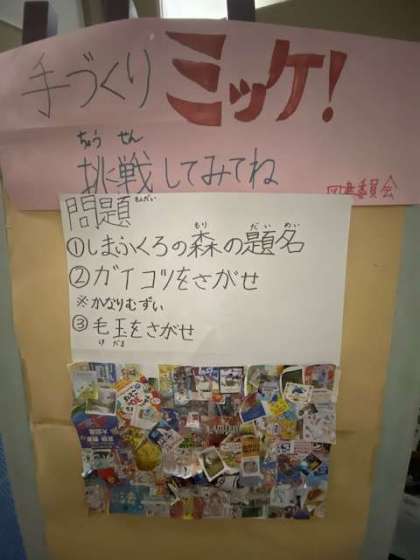 手づくり ミッケ!
ちょう せん
挑戦してみてね
図書委員会
問題 もんだい
①しまふくろの森の題名
もり だい めい
②ガイコツをさがせ
※かなりむずい
③毛玉をさがせ
け だま